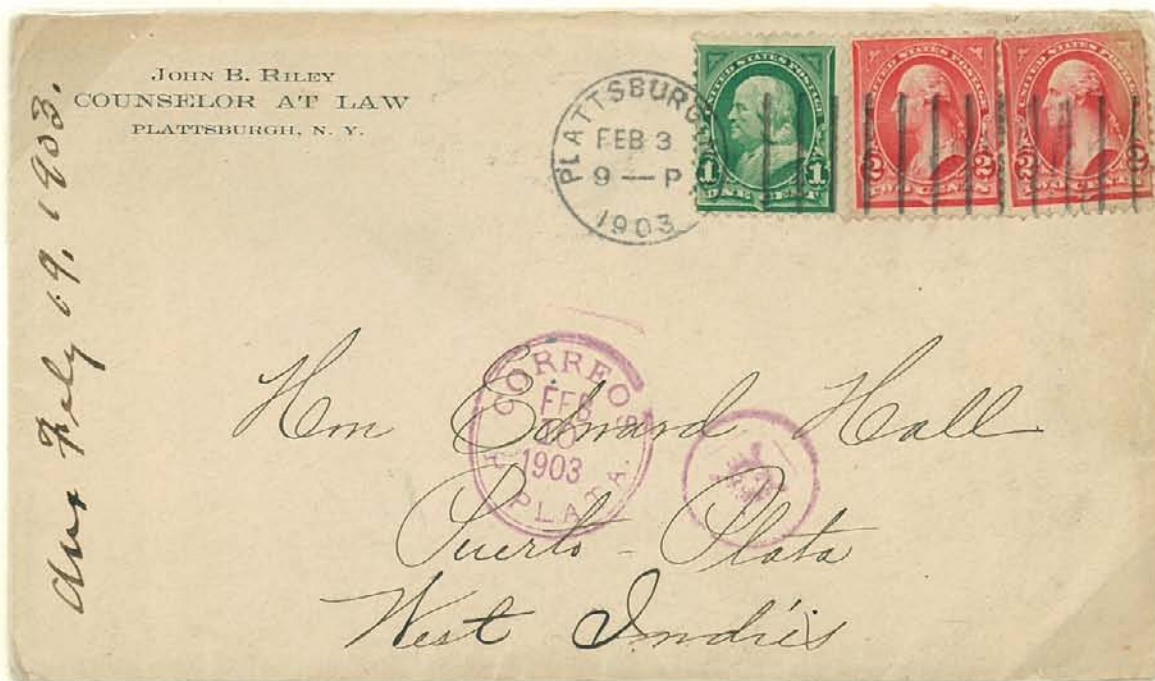 JOHN B. RILEY
COUNSELOR AT LAW
PLATTSBURGH, N. Y.
PLATTSBURG
FEB 3
9 — P
1903
UNITED STATES POSTAGE
1 1
ONE CENT
UNITED STATES POSTAGE
2 2
TWO CENTS
UNITED STATES POSTAGE
2 2
TWO CENTS
Ans Feby 19, 1903.
CORREOS
FEB
10
1903
P. PLATA.
Hon Edward Hall
Puerto - Plata
West Indies